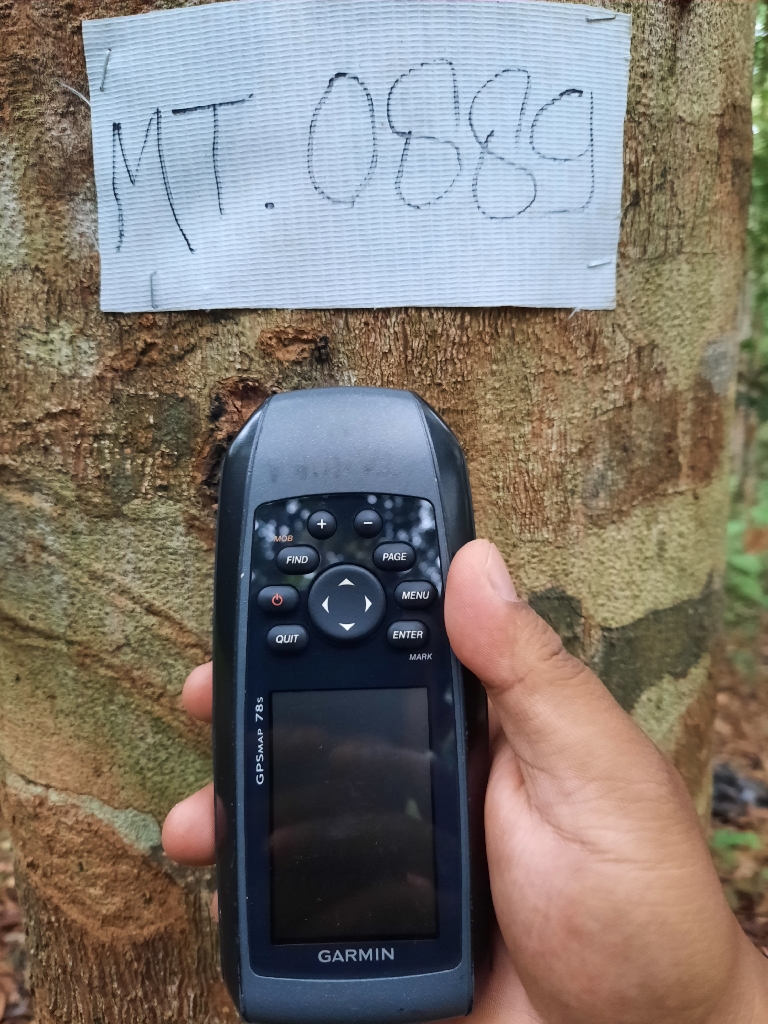 MT. 0889
+ −
MOB
FIND PAGE
MENU
QUIT ENTER
MARK
GPSMAP 78s
GARMIN